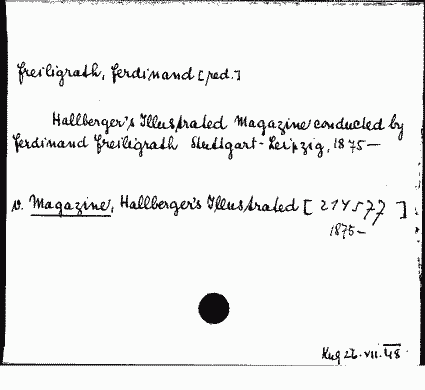 Freiligrath, Ferdinand [red.]
Hallberger's Illustrated Magazine conducted by
Ferdinand Freiligrath Stuttgart-Leipzig, 1875—
v. Magazine, Hallberger's Illustrated [214577]
1875—
26.VII.48